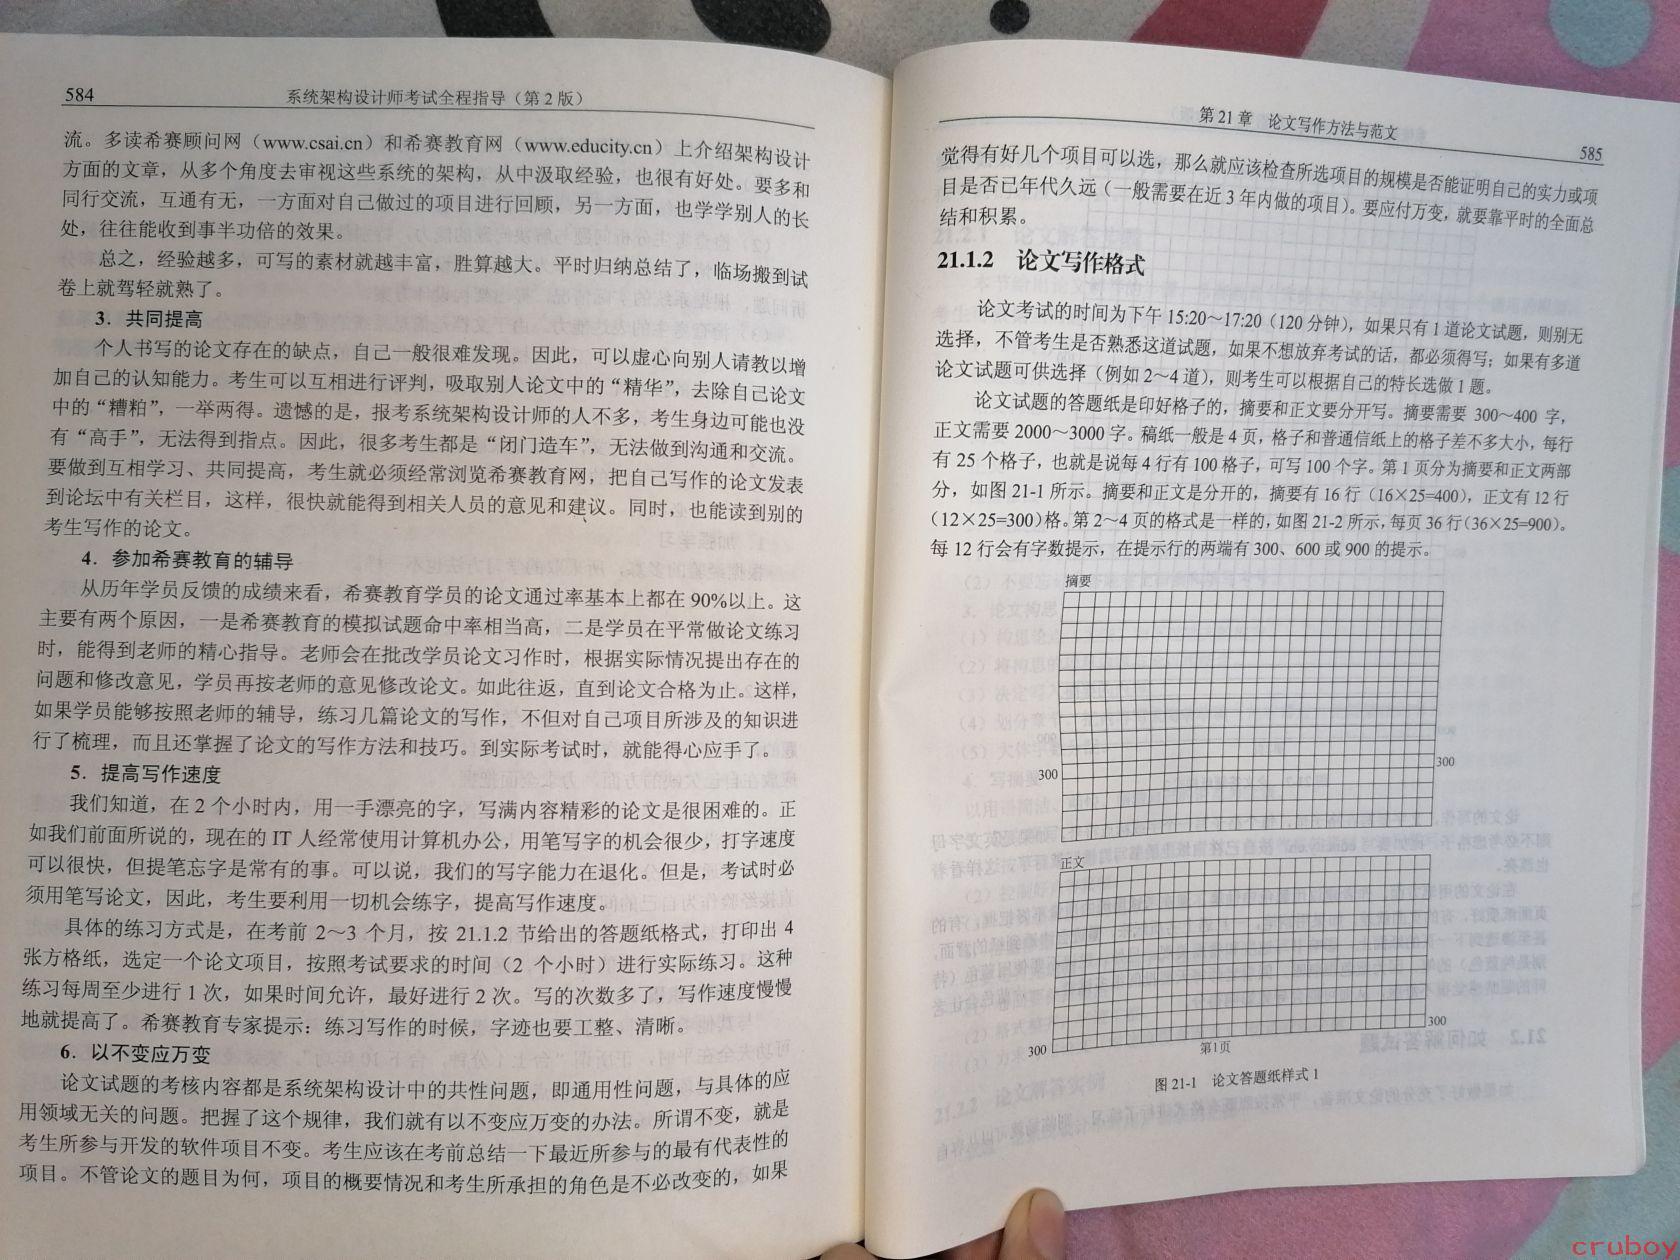 584
系统架构设计师考试全程指导（第 2 版）
流。多读希赛顾问网（www.csai.cn）和希赛教育网（www.educity.cn）上介绍架构设计
方面的文章，从多个角度去审视这些系统的架构，从中汲取经验，也很有好处。要多和
同行交流，互通有无，一方面对自己做过的项目进行回顾，另一方面，也学学别人的长
处，往往能收到事半功倍的效果。
总之，经验越多，可写的素材就越丰富，胜算越大。平时归纳总结了，临场搬到试
卷上就驾轻就熟了。
3．共同提高
个人书写的论文存在的缺点，自己一般很难发现。因此，可以虚心向别人请教以增
加自己的认知能力。考生可以互相进行评判，吸取别人论文中的“精华”，去除自己论文
中的“糟粕”，一举两得。遗憾的是，报考系统架构设计师的人不多，考生身边可能也没
有“高手”，无法得到指点。因此，很多考生都是“闭门造车”，无法做到沟通和交流。
要做到互相学习、共同提高，考生就必须经常浏览希赛教育网，把自己写作的论文发表
到论坛中有关栏目，这样，很快就能得到相关人员的意见和建议。同时，也能读到别的
考生写作的论文。
4．参加希赛教育的辅导
从历年学员反馈的成绩来看，希赛教育学员的论文通过率基本上都在 90%以上。这
主要有两个原因，一是希赛教育的模拟试题命中率相当高，二是学员在平常做论文练习
时，能得到老师的精心指导。老师会在批改学员论文习作时，根据实际情况提出存在的
问题和修改意见，学员再按老师的意见修改论文。如此往返，直到论文合格为止。这样，
如果学员能够按照老师的辅导，练习几篇论文的写作，不但对自己项目所涉及的知识进
行了梳理，而且还掌握了论文的写作方法和技巧。到实际考试时，就能得心应手了。
5．提高写作速度
我们知道，在 2 个小时内，用一手漂亮的字，写满内容精彩的论文是很困难的。正
如我们前面所说的，现在的 IT 人经常使用计算机办公，用笔写字的机会很少，打字速度
可以很快，但提笔忘字是常有的事。可以说，我们的写字能力在退化。但是，考试时必
须用笔写论文，因此，考生要利用一切机会练字，提高写作速度。
具体的练习方式是，在考前 2～3 个月，按 21.1.2 节给出的答题纸格式，打印出 4
张方格纸，选定一个论文项目，按照考试要求的时间（2 个小时）进行实际练习。这种
练习每周至少进行 1 次，如果时间允许，最好进行 2 次。写的次数多了，写作速度慢慢
地就提高了。希赛教育专家提示：练习写作的时候，字迹也要工整、清晰。
6．以不变应万变
论文试题的考核内容都是系统架构设计中的共性问题，即通用性问题，与具体的应
用领域无关的问题。把握了这个规律，我们就有以不变应万变的办法。所谓不变，就是
考生所参与开发的软件项目不变。考生应该在考前总结一下最近所参与的最有代表性的
项目。不管论文的题目为何，项目的概要情况和考生所承担的角色是不必改变的，如果
第 21 章 论文写作方法与范文
585
觉得有好几个项目可以选，那么就应该检查所选项目的规模是否能证明自己的实力或项
目是否已年代久远（一般需要在近 3 年内做的项目）。要应付万变，就要靠平时的全面总
结和积累。
21.1.2 论文写作格式
论文考试的时间为下午 15:20～17:20（120 分钟），如果只有 1 道论文试题，则别无
选择，不管考生是否熟悉这道试题，如果不想放弃考试的话，都必须得写；如果有多道
论文试题可供选择（例如 2～4 道），则考生可以根据自己的特长选做 1 题。
论文试题的答题纸是印好格子的，摘要和正文要分开写。摘要需要 300～400 字，
正文需要 2000～3000 字。稿纸一般是 4 页，格子和普通信纸上的格子差不多大小，每行
有 25 个格子，也就是说每 4 行有 100 格子，可写 100 个字。第 1 页分为摘要和正文两部
分，如图 21-1 所示。摘要和正文是分开的，摘要有 16 行（16×25=400），正文有 12 行
（12×25=300）格。第 2～4 页的格式是一样的，如图 21-2 所示，每页 36 行（36×25=900）。
每 12 行会有字数提示，在提示行的两端有 300、600 或 900 的提示。
摘要
300
300
正文
300
300
第1页
图 21-1 论文答题纸样式 1
cruboy